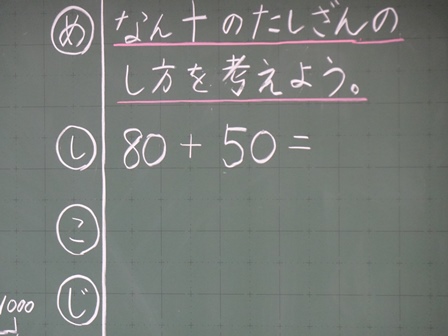 め なん十のたしざんの
し方を考えよう。
し 80+50=
こ
じ
1000